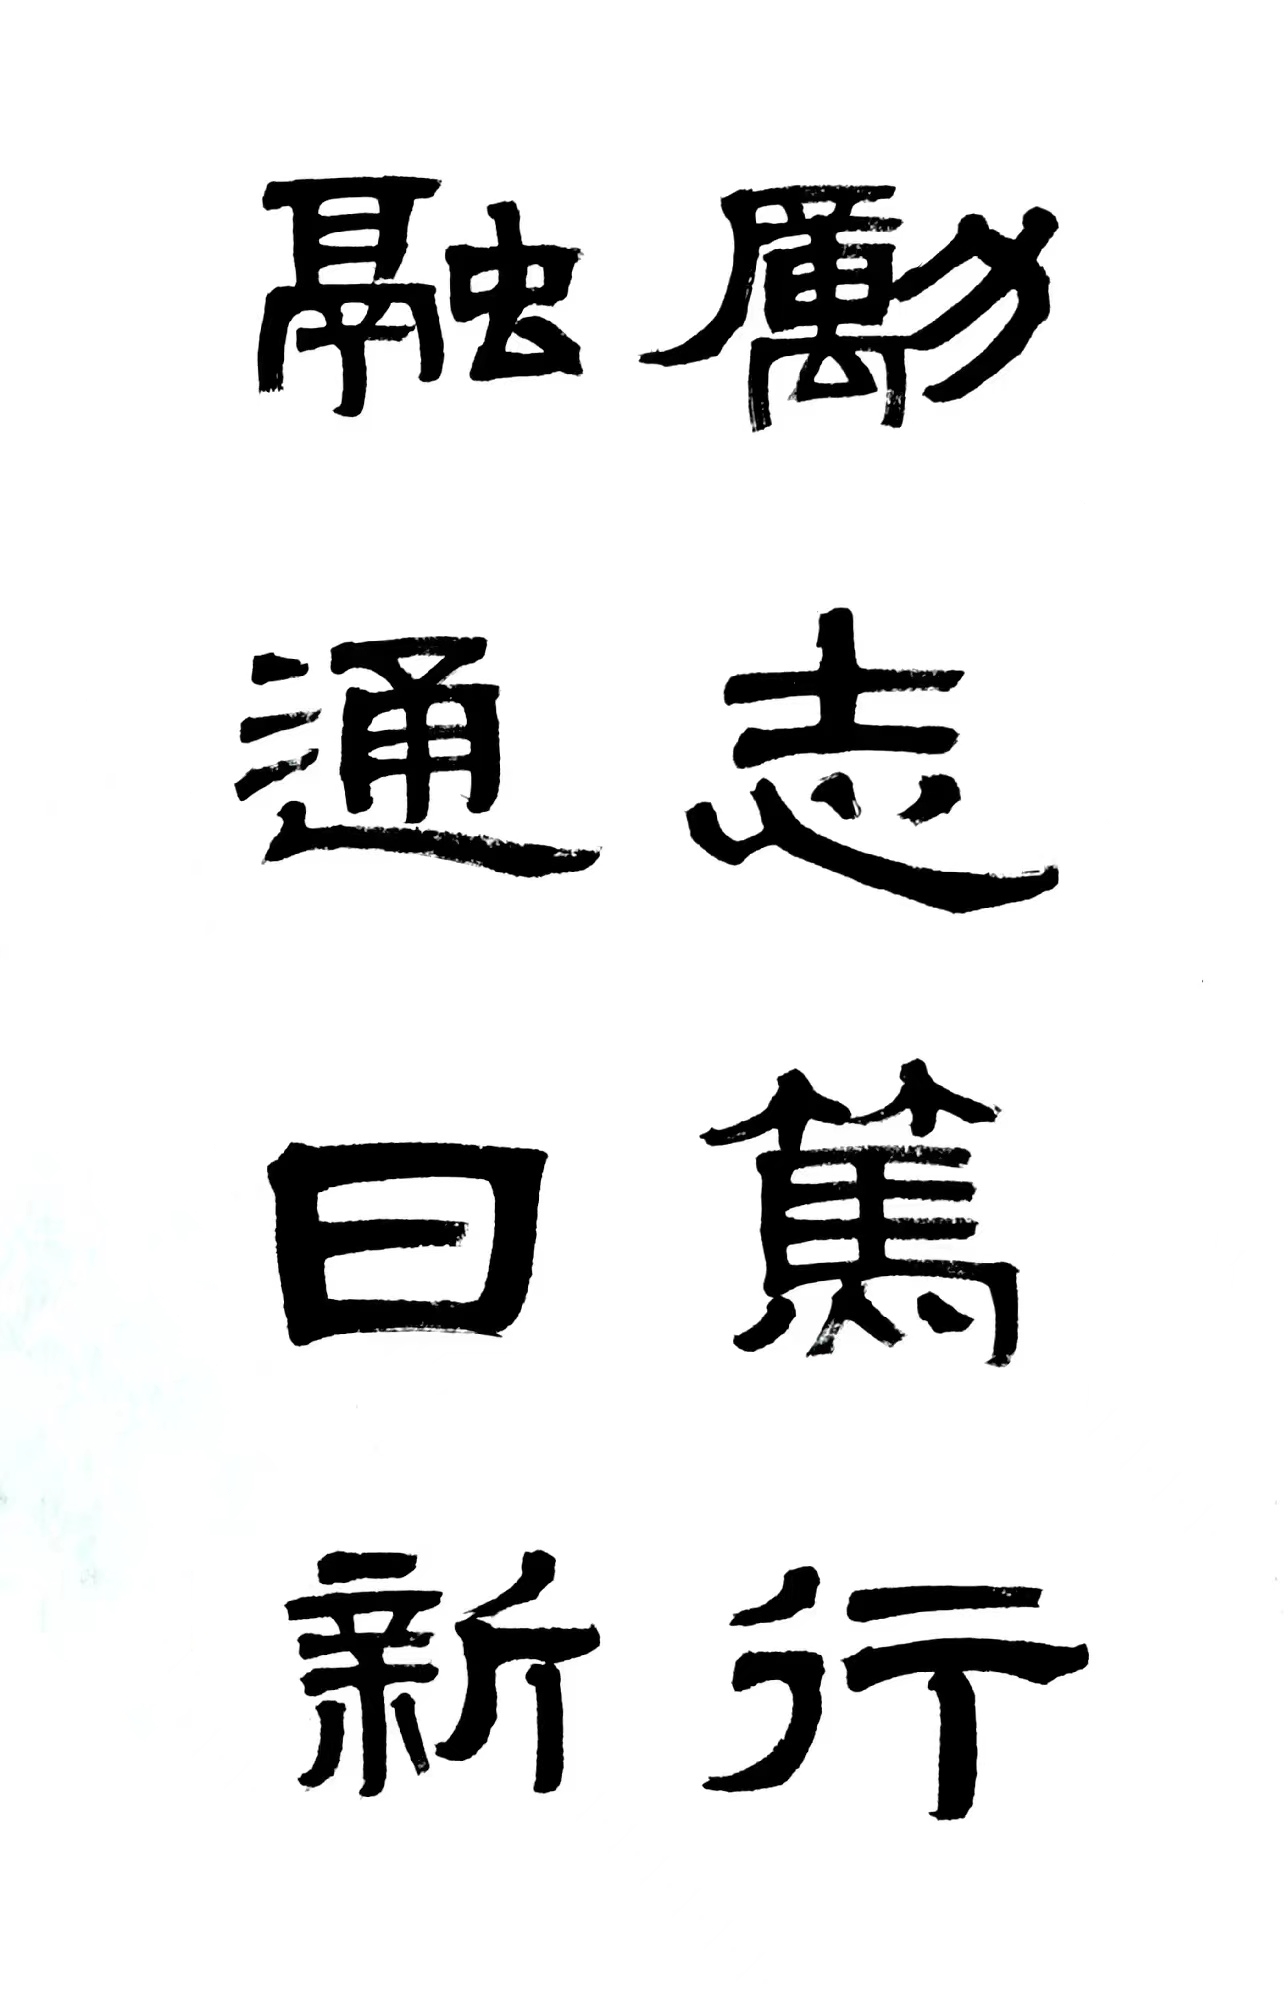 勵志篤行
融通日新